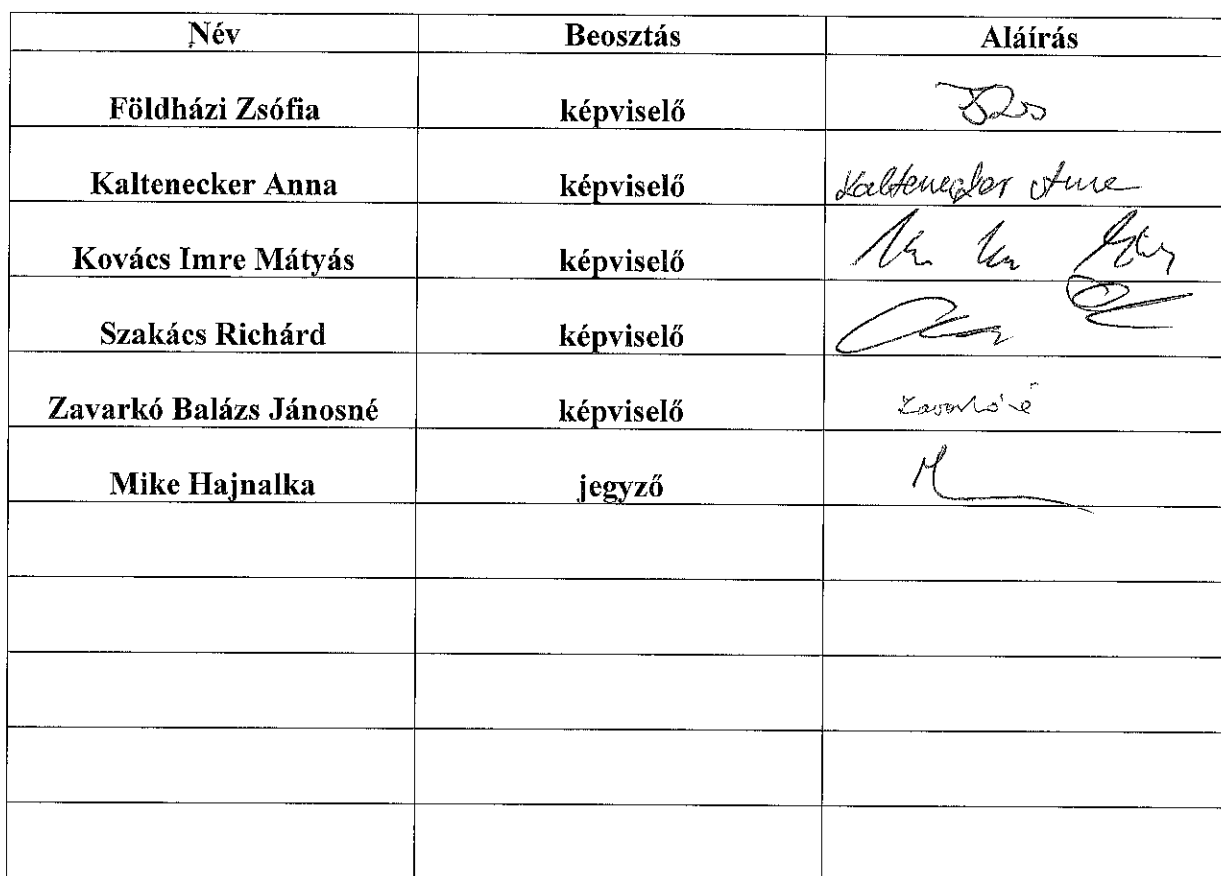 Név Beosztás Aláírás
Földházi Zsófia képviselő
Kaltenecker Anna képviselő Kaltenecker Anna
Kovács Imre Mátyás képviselő
Szakács Richárd képviselő
Zavarkó Balázs Jánosné képviselő Zavarkóné
Mike Hajnalka jegyző